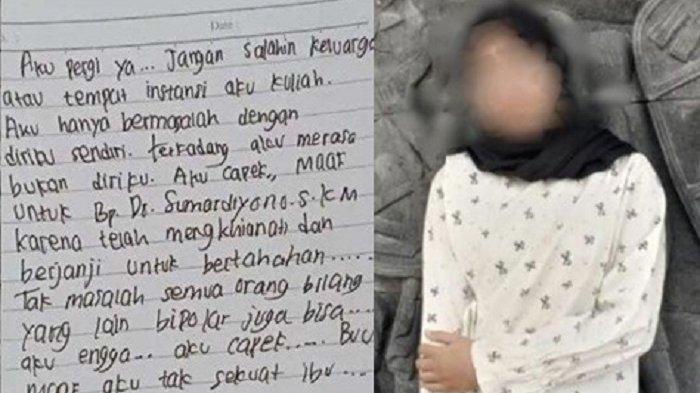 Date :
Aku pergi ya... Jangan salahin keluarga
atau tempat instansi aku kuliah.
Aku hanya bermasalah dengan
diriku sendiri. terkadang aku merasa
bukan diriku. Aku capek,, maaf
untuk Bp. Dr. Sumardiyono.S.KM
karena telah mengkhianati dan
berjanji untuk bertahahan.....
Tak masalah semua orang bilang
yang lain bipolar juga bisa....
aku engga... aku capek..... Bu
maaf aku tak sekuat ibu....